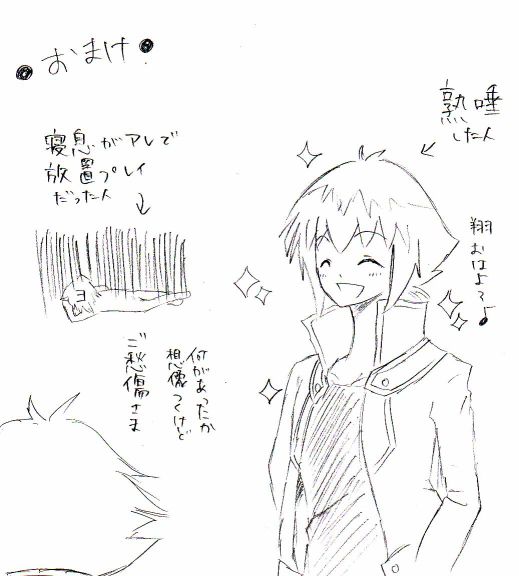 おまけ
熟睡
した人
寝息がアレで
放置プレイ
だった人
翔おはよう♪
ヨ
何があったか
想像つくけど
ご愁傷さま